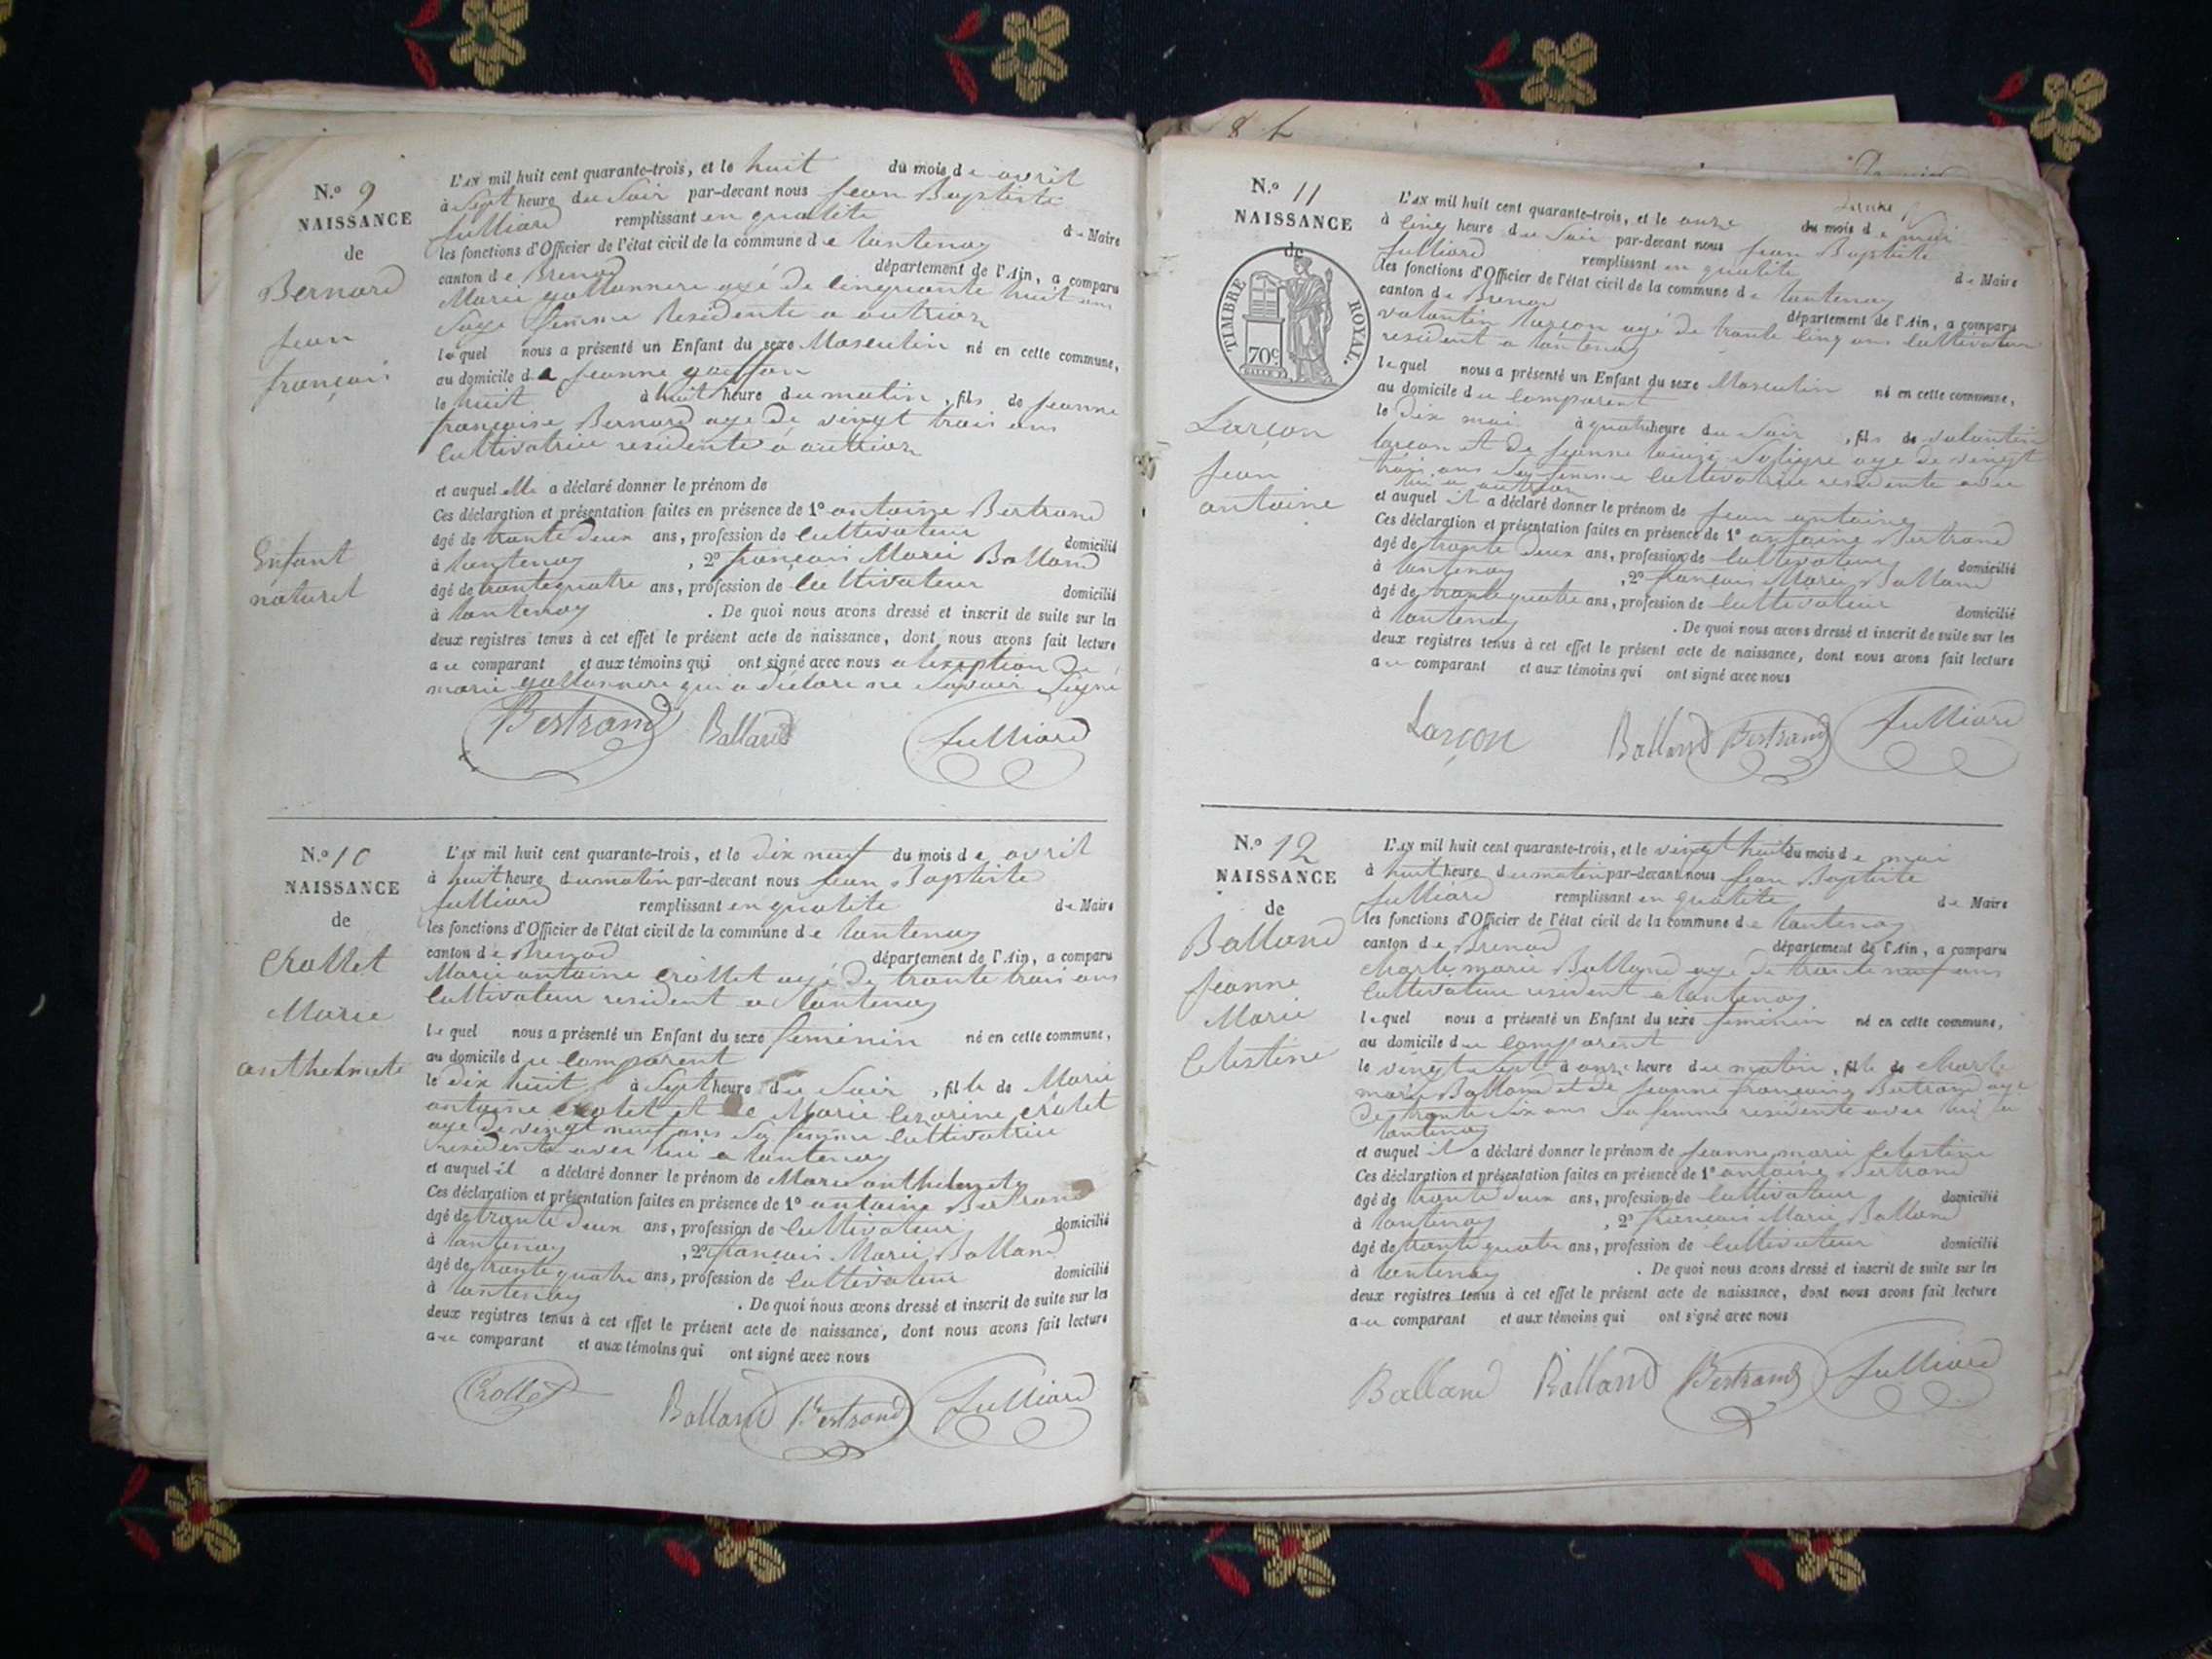 N.º 9
NAISSANCE
de
Bernard
jean
françois
Enfant
naturel
L'AN mil huit cent quarante-trois, et le huit du mois de avril
à Sept heure du Soir par-devant nous jean Baptiste
julliard remplissant en qualité de Maire
les fonctions d'Officier de l'état civil de la commune de lantenay
canton de Brenod département de l'Ain, a comparu
Marie agé de cinquante huit ans
Sage femme Residente a outriaz
lequel nous a présenté un Enfant du sexe Masculin né en cette commune,
au domicile de jeanne
le huit à huit heure du matin, fils de jeanne
françoise Bernard agé de vingt trois ans
Cultivatrice residente a outriaz
et auquel elle a déclaré donner le prénom de
Ces déclaration et présentation faites en présence de 1º antoine Bertrand
âgé de trante deux ans, profession de Cultivateur domicilié
à lantenay, 2º françois Marie Balland
âgé de trante quatre ans, profession de Cultivateur domicilié
à lantenay. De quoi nous avons dressé et inscrit de suite sur les
deux registres tenus à cet effet le présent acte de naissance, dont nous avons fait lecture
au comparant et aux témoins qui ont signé avec nous a lexeption de
marie qui a déclaré ne Savoir Signé
Bertrand Balland julliard
N.º 10
NAISSANCE
de
Crollet
Marie
anthelmete
L'AN mil huit cent quarante-trois, et le dix neuf du mois de avril
à huit heure du matin par-devant nous jean Baptiste
julliard remplissant en qualité de Maire
les fonctions d'Officier de l'état civil de la commune de lantenay
canton de Brenod département de l'Ain, a comparu
Marie antoine Crollet agé de trante trois ans
Cultivateur resident a lantenay
lequel nous a présenté un Enfant du sexe feminin né en cette commune,
au domicile du comparent
le dix huit à Sept heure du Soir, fille de Marie
antoine Crolet et de Marie Cezarine Crolet
agé de vingt neuf ans Sa femme Cultivatrice
residente avec lui a lantenay
et auquel il a déclaré donner le prénom de Marie anthelmete
Ces déclaration et présentation faites en présence de 1º antoine Bertrand
âgé de trante deux ans, profession de Cultivateur domicilié
à lantenay, 2º françois Marie Balland
âgé de trante quatre ans, profession de Cultivateur domicilié
à lantenay. De quoi nous avons dressé et inscrit de suite sur les
deux registres tenus à cet effet le présent acte de naissance, dont nous avons fait lecture
au comparant et aux témoins qui ont signé avec nous
Crollet Balland Bertrand julliard
N.º 11
NAISSANCE
de
TIMBRE ROYAL.
70c
Larçon
jean
antoine
L'AN mil huit cent quarante-trois, et le onze du mois de mai
à Cinq heure du Soir par-devant nous jean Baptiste
julliard remplissant en qualité de Maire
les fonctions d'Officier de l'état civil de la commune de lantenay
canton de Brenod département de l'Ain, a comparu
valantin larçon agé de trante Cinq ans Cultivateur
resident a lantenay
lequel nous a présenté un Enfant du sexe Masculin né en cette commune,
au domicile du comparent
le dix mai à quatre heure du Soir, fils de valantin
larçon et de jeanne louise agé de vingt
trois ans Sa femme Cultivatrice residente avec
lui a outriaz
et auquel il a déclaré donner le prénom de jean antoine
Ces déclaration et présentation faites en présence de 1º antoine Bertrand
âgé de trante deux ans, profession de Cultivateur domicilié
à lantenay, 2º françois Marie Balland
âgé de trante quatre ans, profession de Cultivateur domicilié
à lantenay. De quoi nous avons dressé et inscrit de suite sur les
deux registres tenus à cet effet le présent acte de naissance, dont nous avons fait lecture
au comparant et aux témoins qui ont signé avec nous
Larçon Balland Bertrand julliard
N.º 12
NAISSANCE
de
Balland
jeanne
Marie
Celestine
L'AN mil huit cent quarante-trois, et le vingt huit du mois de mai
à huit heure du matin par-devant nous jean Baptiste
julliard remplissant en qualité de Maire
les fonctions d'Officier de l'état civil de la commune de lantenay
canton de Brenod département de l'Ain, a comparu
Charle marie Balland agé de trante neuf ans
Cultivateur resident a lantenay
lequel nous a présenté un Enfant du sexe feminin né en cette commune,
au domicile du comparent
le vingt Sept à onze heure du matin, fille de Charle
marie Balland et de jeanne françoise Bertrand agé
de trante Six ans Sa femme residente avec lui a
lantenay
et auquel il a déclaré donner le prénom de jeanne marie Celestine
Ces déclaration et présentation faites en présence de 1º antoine Bertrand
âgé de trante deux ans, profession de Cultivateur domicilié
à lantenay, 2º françois Marie Balland
âgé de trante quatre ans, profession de Cultivateur domicilié
à lantenay. De quoi nous avons dressé et inscrit de suite sur les
deux registres tenus à cet effet le présent acte de naissance, dont nous avons fait lecture
au comparant et aux témoins qui ont signé avec nous
Balland Balland Bertrand julliard